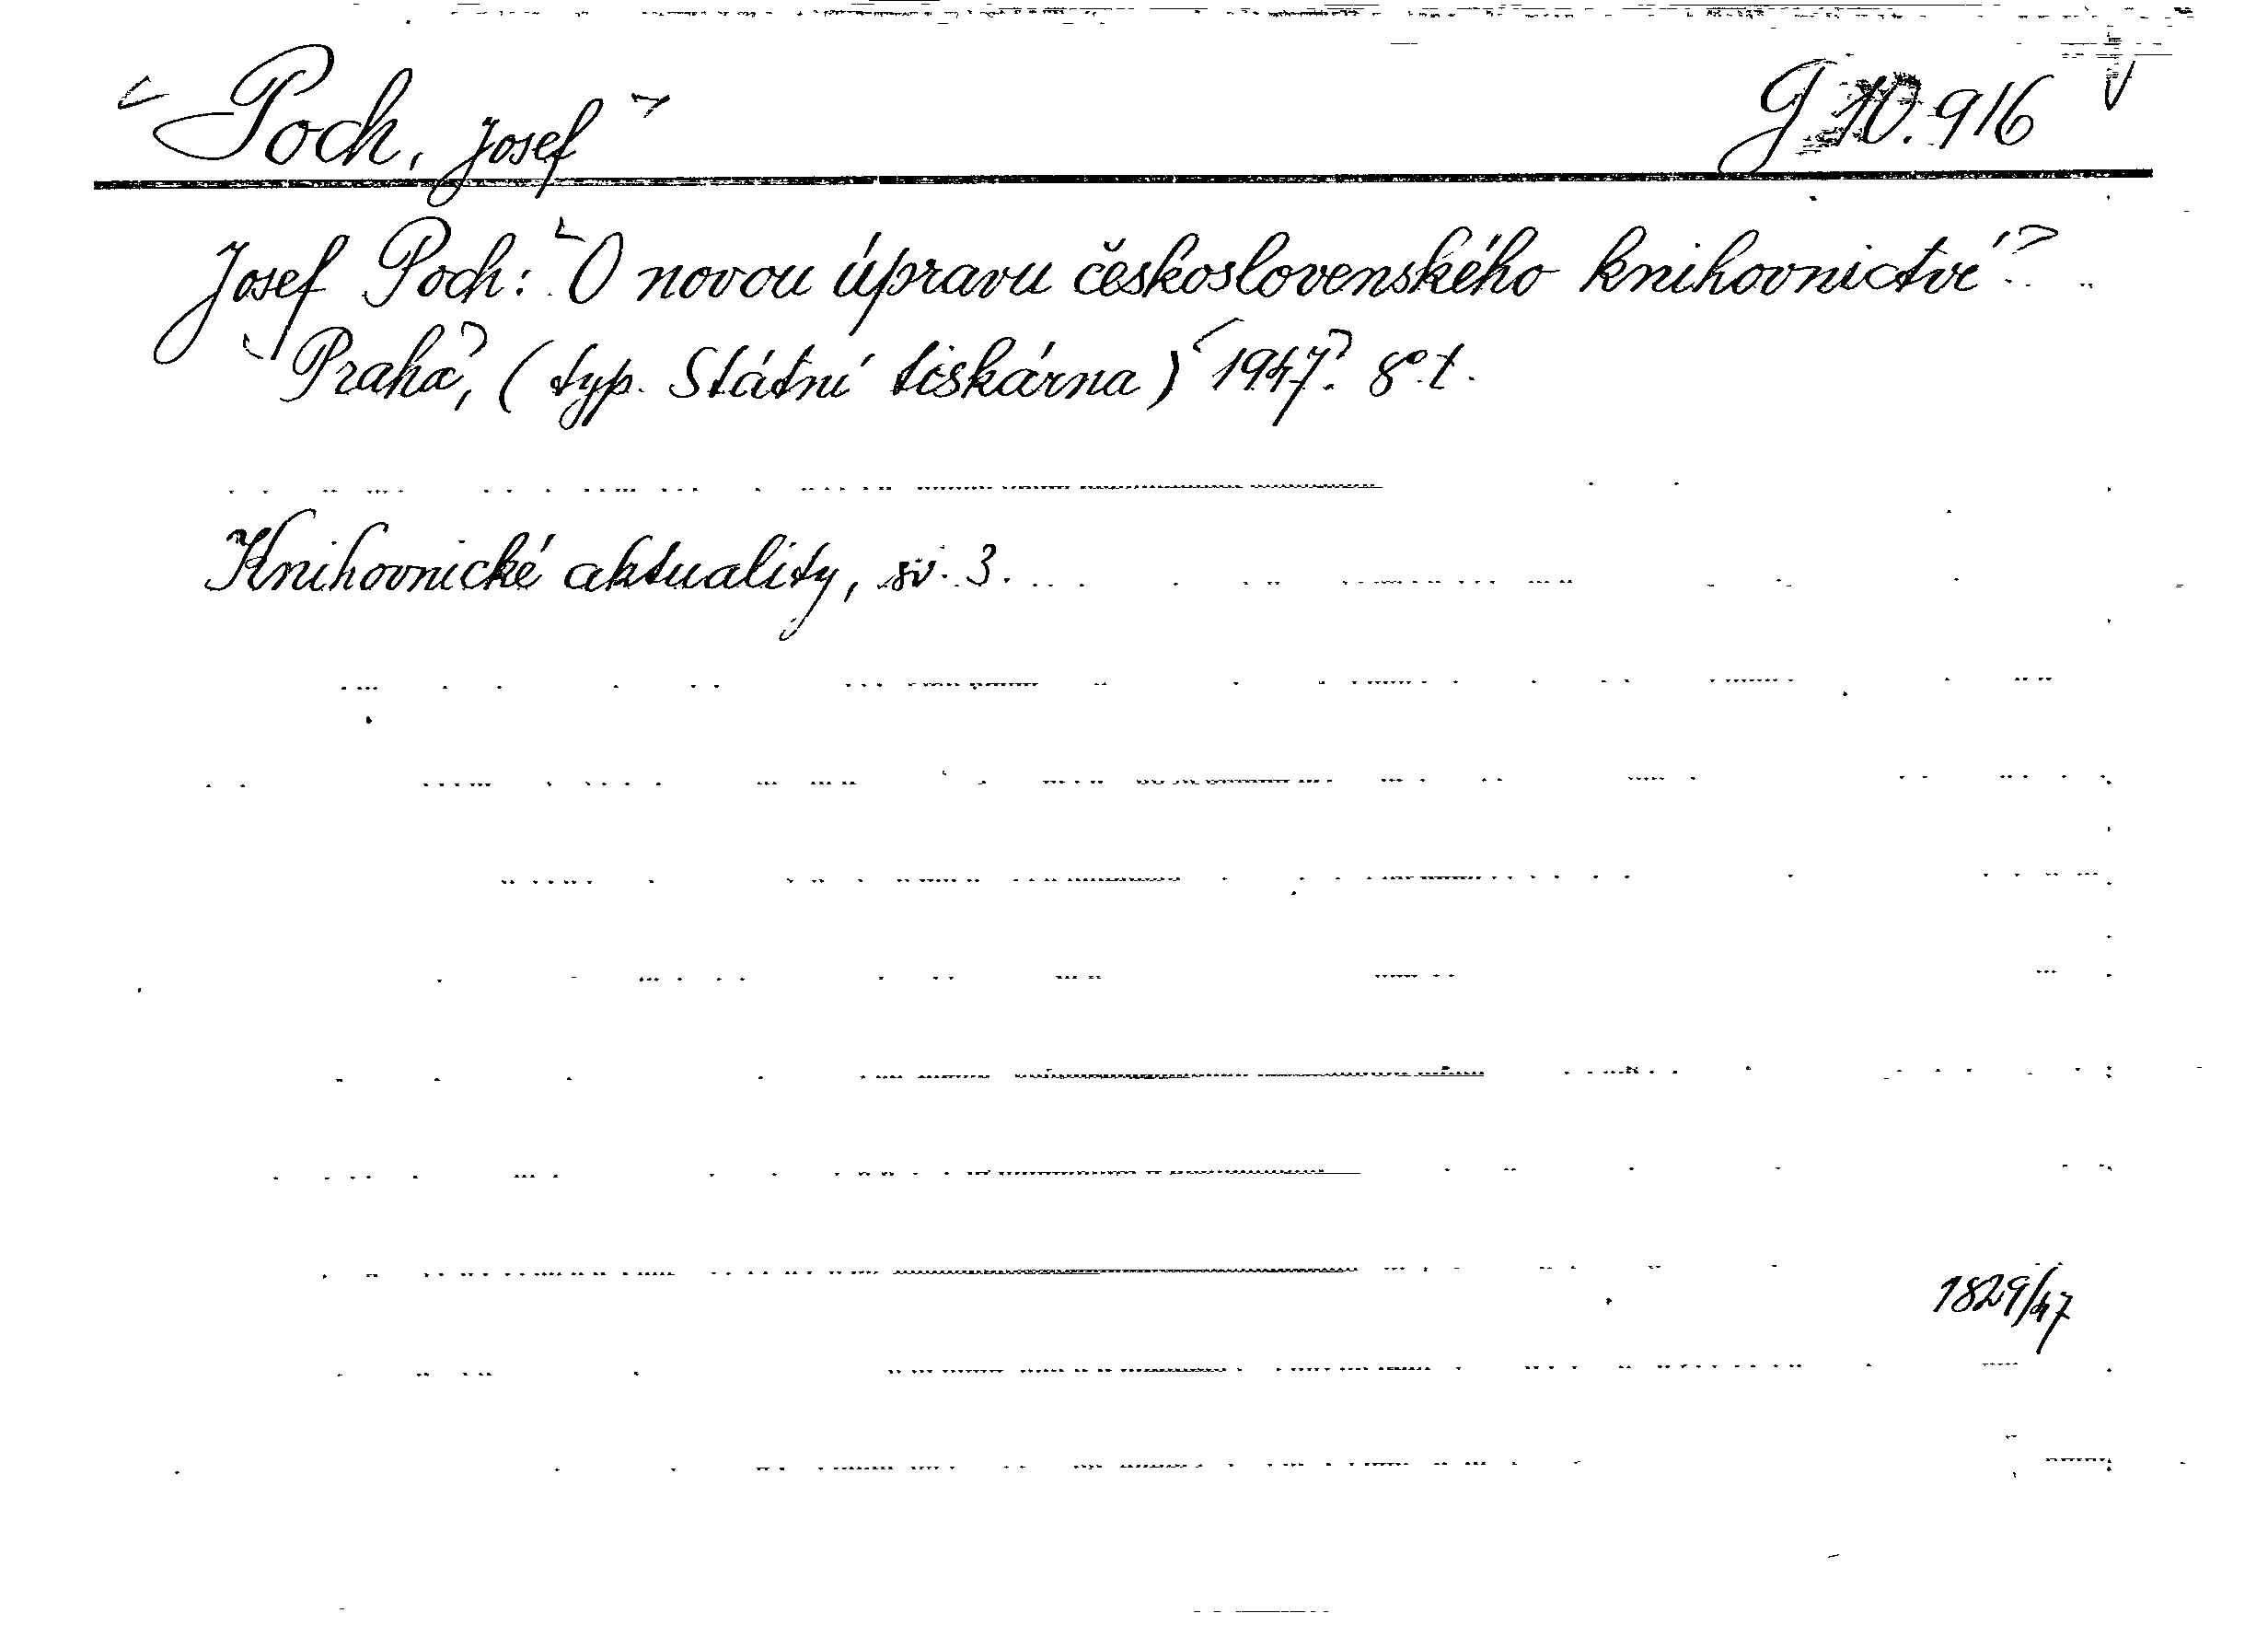 Poch, Josef G 10.916
Josef Poch: O novou úpravu československého knihovnictví.
Praha, (typ. Státní tiskárna) 1947. 8° t.
Knihovnické aktuality, sv. 3.
1829/47